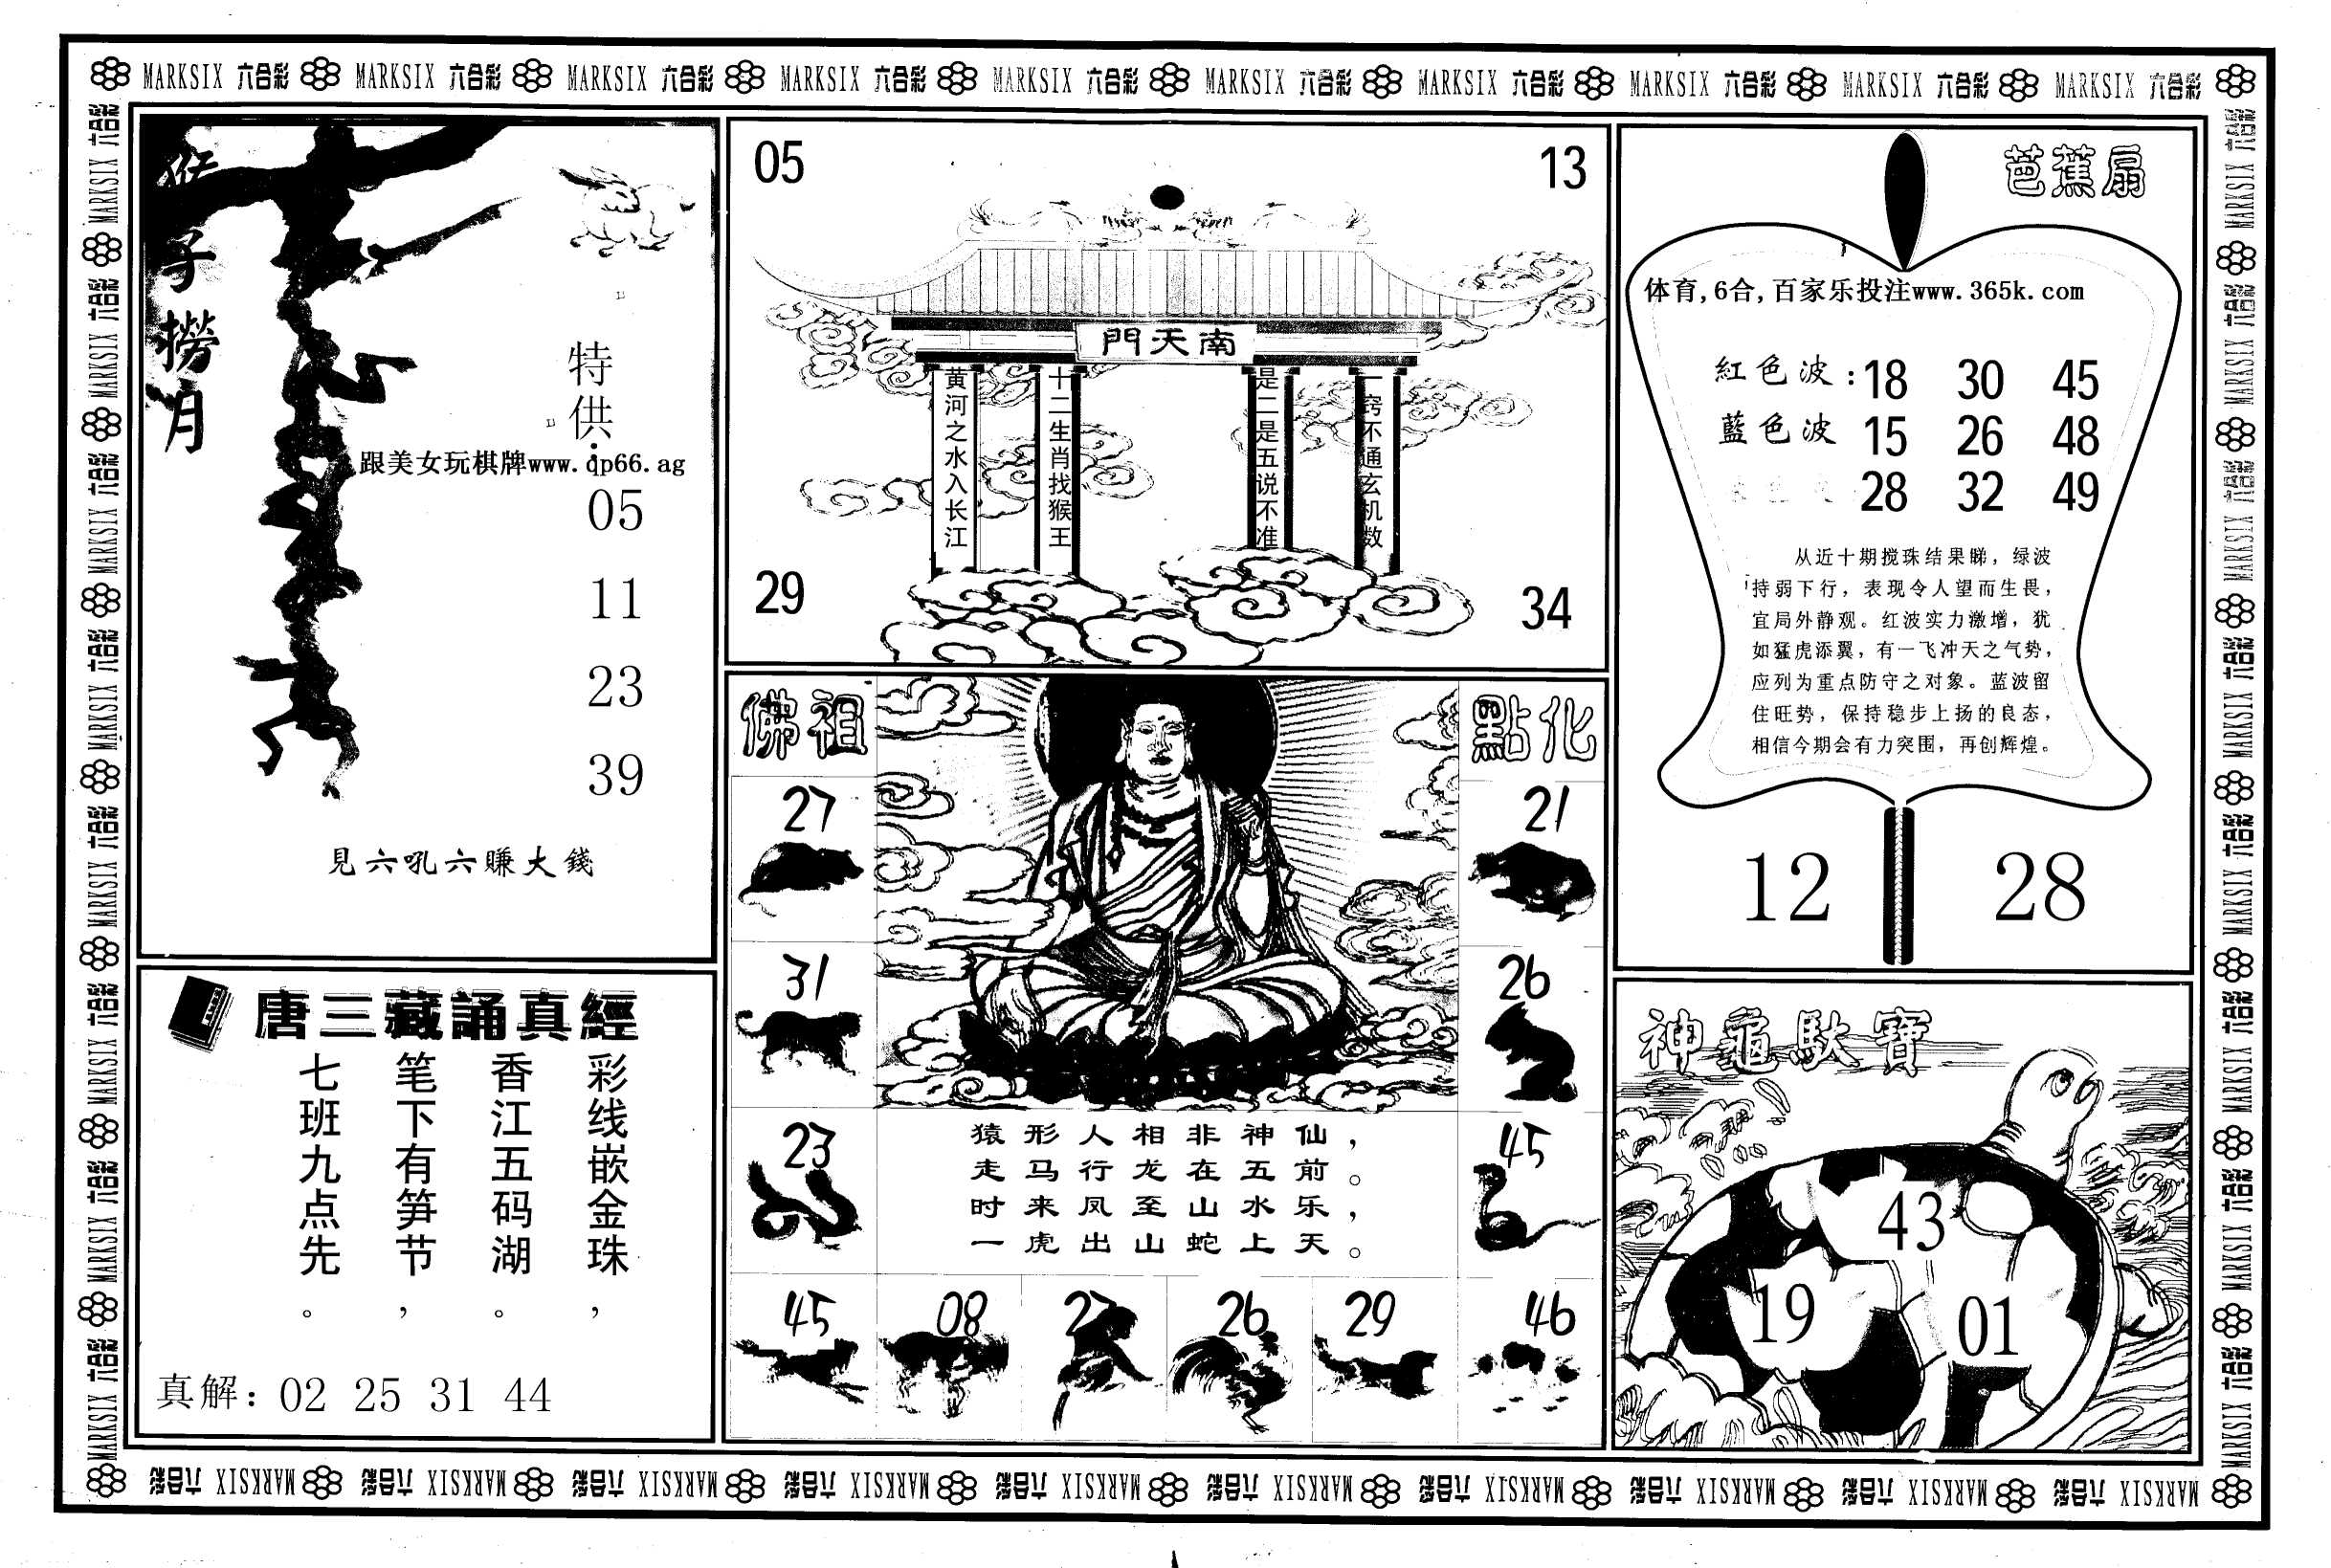 MARKSIX 六合彩 MARKSIX 六合彩 MARKSIX 六合彩 MARKSIX 六合彩 MARKSIX 六合彩 MARKSIX 六合彩 MARKSIX 六合彩 MARKSIX 六合彩 MARKSIX 六合彩 MARKSIX 六合彩
猴子撈月
特供:
跟美女玩棋牌www.qp66.ag
05
11
23
39
見六吼六賺大錢
05
13
南天門
一窍不通玄机数
是二是五说不准
十二生肖找猴王
黄河之水入长江
29
34
芭蕉扇
体育,6合,百家乐投注www.365k.com
紅色波:18 30 45
藍色波 15 26 48
28 32 49
从近十期搅珠结果睇，绿波
持弱下行，表现令人望而生畏，
宜局外静观。红波实力激增，犹
如猛虎添翼，有一飞冲天之气势，
应列为重点防守之对象。蓝波留
住旺势，保持稳步上扬的良态，
相信今期会有力突围，再创辉煌。
12
28
佛祖
點化
27
21
31
26
23
45
猿形人相非神仙，
走马行龙在五前。
时来凤至山水乐，
一虎出山蛇上天。
45 08 27 26 29 46
唐三藏誦真經
彩线嵌金珠，
香江五码湖。
笔下有笋节，
七班九点先。
真解：02 25 31 44
神龜馱寶
43
19
01
MARKSIX 六合彩 MARKSIX 六合彩 MARKSIX 六合彩 MARKSIX 六合彩 MARKSIX 六合彩 MARKSIX 六合彩 MARKSIX 六合彩 MARKSIX 六合彩 MARKSIX 六合彩 MARKSIX 六合彩